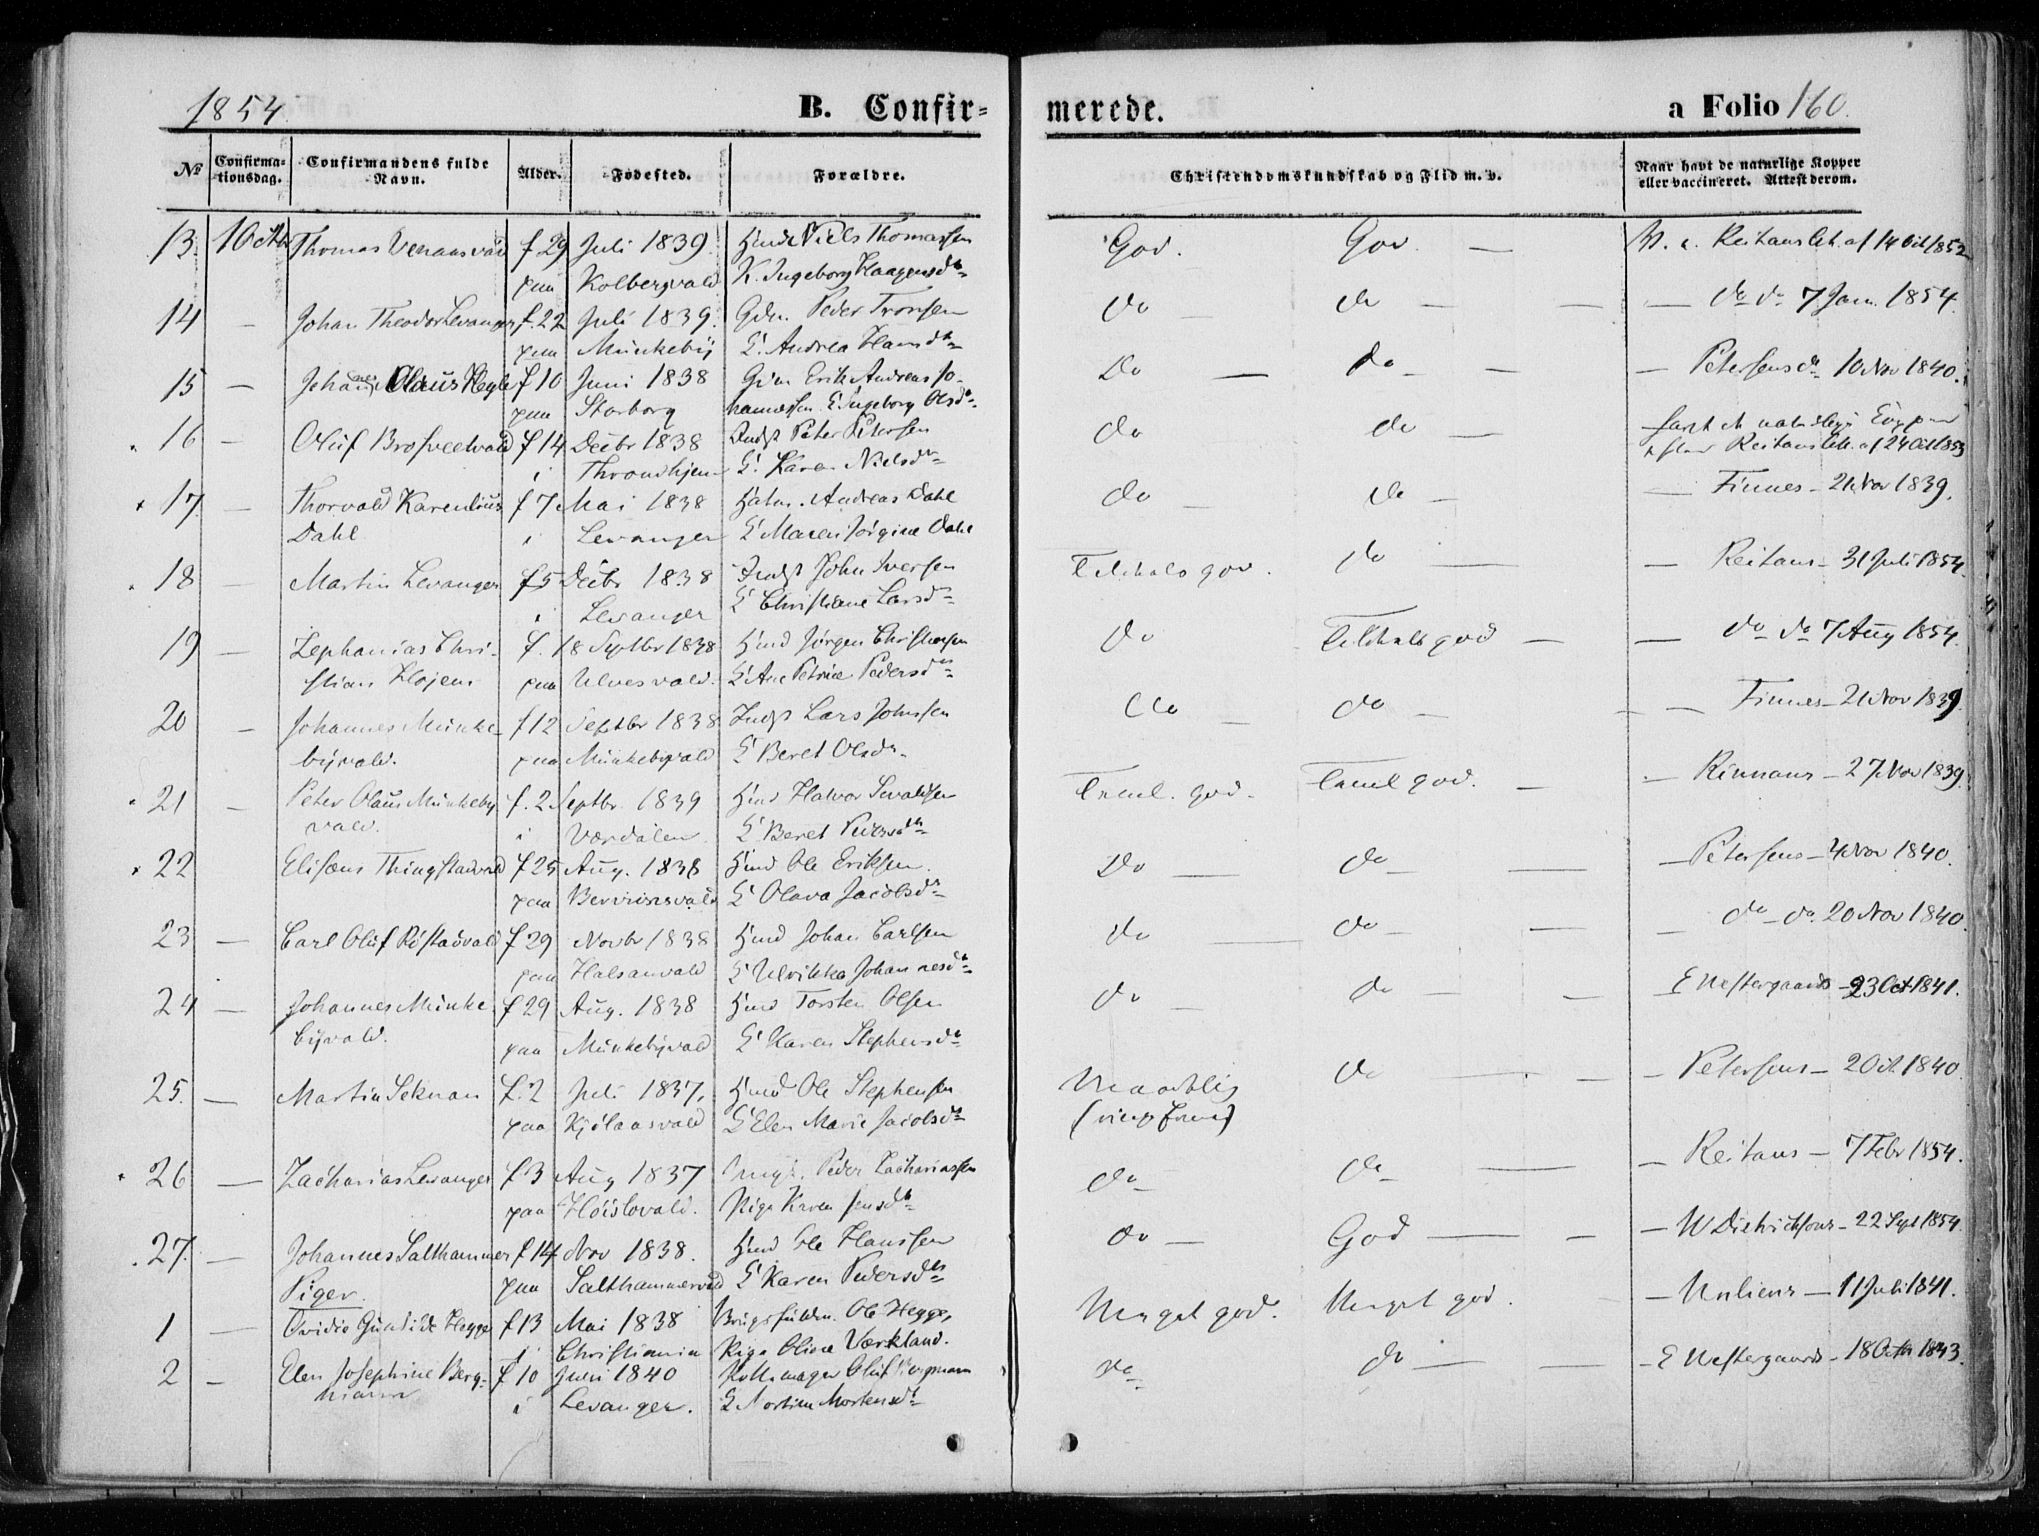 1854.
B. Confir=
merede.
a Folio 160.
№
Confirma-
tionsdag.
Confirmandens fulde
Navn.
Alder.
Fødested.
Forældre.
Christendomskundskab og Flid m. v.
Naar havt de naturlige Kopper
eller vaccineret. Attest derom.
13. 1 Octbr Thomas f 29 Juli 1839 Niels Thomassen God. God. — Reitans af 14 1852
paa Kolbergvald K. Ingeborg Haagensd
14 — Johan Theodor Levanger f. 22 Juli 1839. Gdm. Peder Tronsen do do — — do do 7 Jan. 1854.
paa Munkeby E. Andrea
15 — Johannes Olaus Hegle f 10 Juni 1838 Erik Andreas Jo- Do — do — — Petersens do 10 Nov 1840.
paa Storborg hannessen E. Ingeborg Olsd
16 — Oluf f 14 Decbr 1838 Indst Peter Petersen do do — havt de naturlige
i Throndhjem E. Karen Nielsd efter Reitans af 24 Oct 1853
17 — Thorvald Karenlius f 7 Mai 1838 Andreas Dahl do do — — Finnes — 21 Nov 1839.
Dahl i Levanger E Maren Jørgine Dahl
18 — Martin Levanger f 5 Decbr 1838 Indst John Iversen Temmelig god. do — — Reitans — 31 Juli 1854.
i Levanger E Christiane Larsd
19 — Zephanias Chri- f. 18 Septbr 1838 Hmd Jørgen do god — — do do 7 Aug 1854.
stian Højem paa Ulvesvald. E Ane Petrine Pedersd
20 — Johannes Munke- f 12 Septbr 1838 Indst Lars Johnsen do — do — — Finnes — 21 Nov 1839
byvald. paa Munkebyvald E Beret Olsd
21 — Peter Olaus Munkeby f. 2 Septbr 1839 Hmd Halvor god. god. — — Rinnans — 27 Nov 1839.
vald. i Værdalen E Beret Pedersd
22 Elisæus Thingstadvald f 25 Aug. 1838 Hmd Ole Eriksen Do — do — — — Petersens — 4 Nov 1840.
paa E Olava Jacobsd
23 — Carl Oluf Røstadvald f 29 Novbr 1838 Hmd Johan Carlsen do — do — — — do — do. 20 Nov 1840.
paa Halsanvald E Ulrikka Johannesd
24 — Johannes Munke f 29 Aug. 1838 Hmd Torsten Olsen do — do — — E Westergaards — 23 Oct 1841.
byvald. paa Munkebyvald E Karen Stephensd
25. — Martin Seknan f. 2 Juli 1837, Hmd Ole Stephensen Maadelig do — — — Petersens — 2 Oct 1840.
paa Kjølaasvald E Elen Marie Jacobsd
26 — Zacharias Levanger f 3 Aug 1837 Peder Zachariassen do — do — — — Reitans — 7 Febr 1854.
paa Høislovald. Pige Karen Jensd
27. — Johannes Salthammer f 14 Nov 1838. Hmd Ole Hanssen do — God — — — W Dietrichsons — 22 Sept 1854.
Piger. paa Salthammervald E Karen Pedersd
1 — Ovidia Gunhilde Hegge f 13 Mai 1838 Ole Hegge, Meget god. Meget god. — — 11 Juli 1841.
i Christiania Pige Oline Værkland.
2 — Elen Josephine Berg- f 10 Juni 1840 Pottemager Oluf Bergmann do do — — — E Westergaards — 18 Octbr 1843.
mann i Levanger. E Mortensd